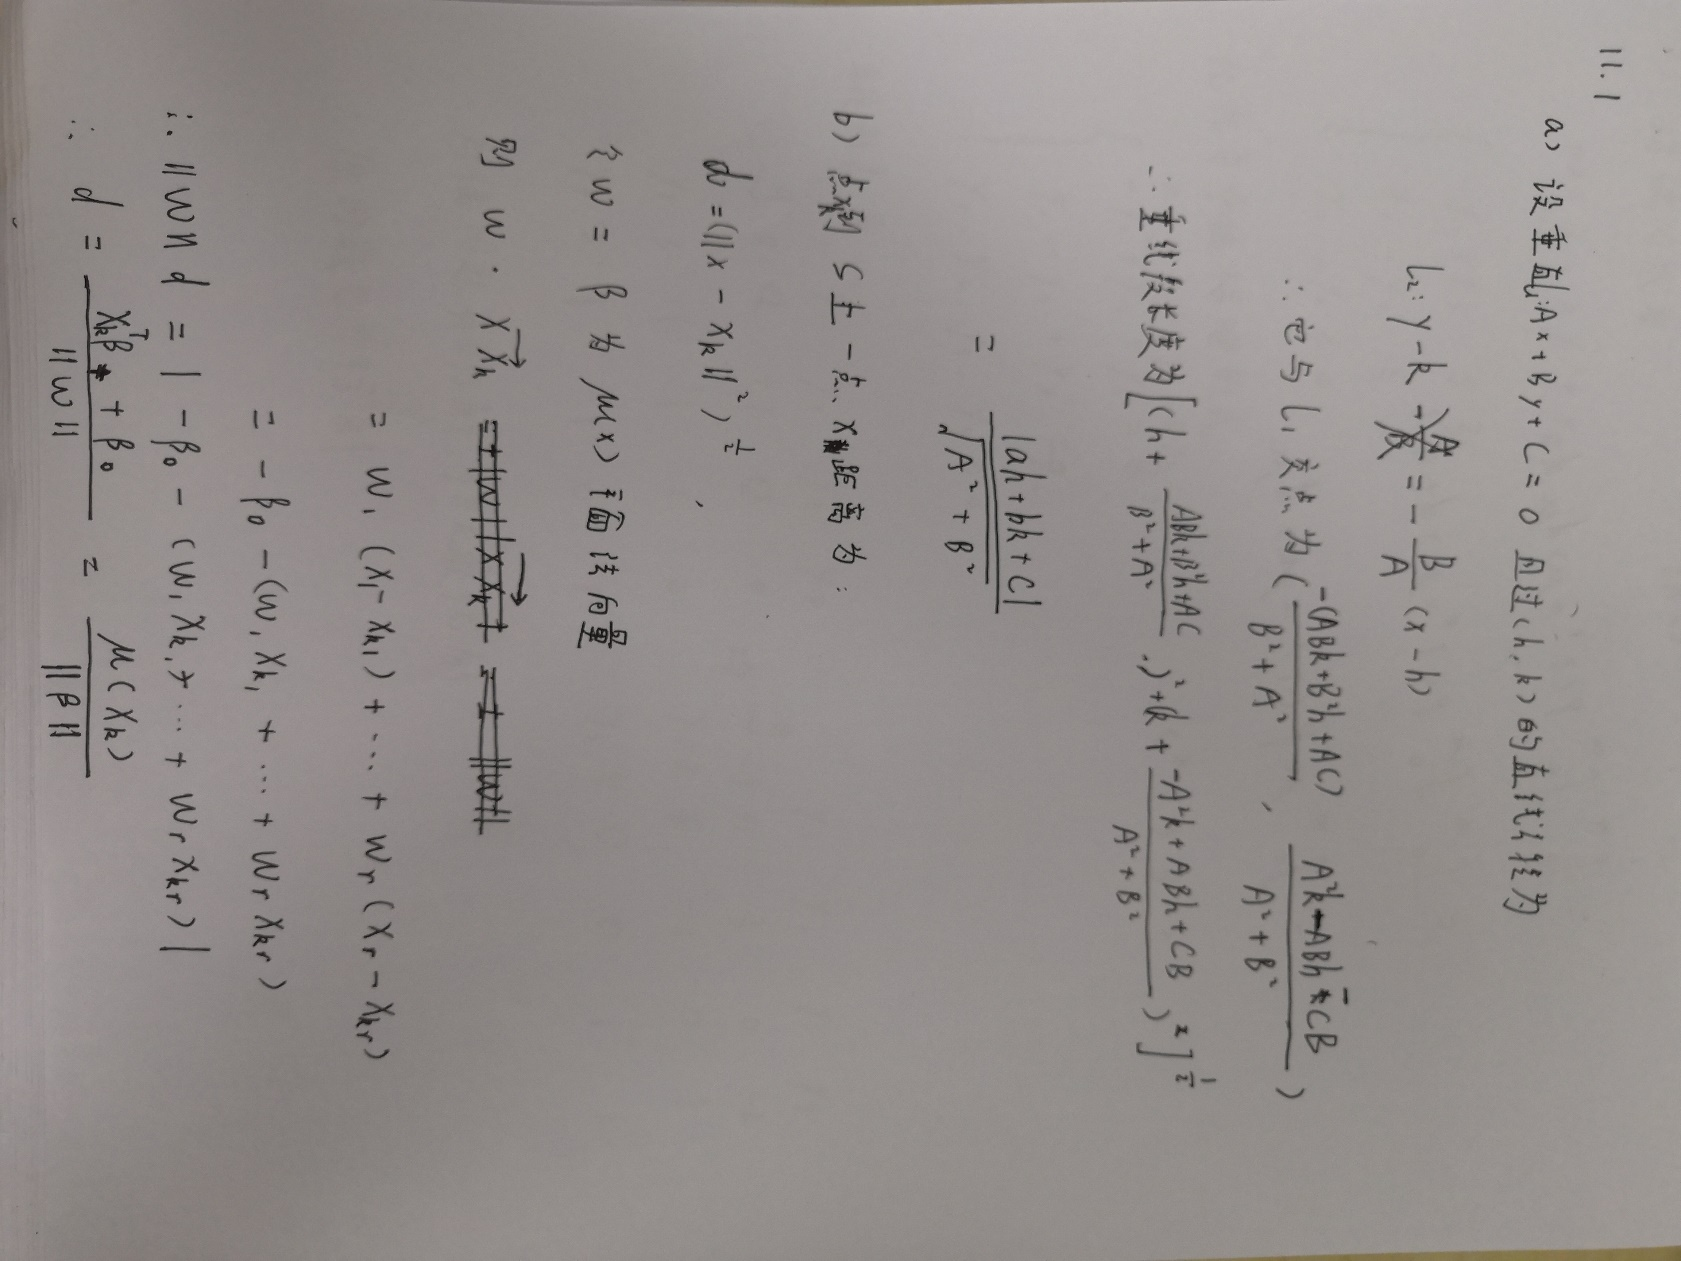 11.1
a) 设垂直l₁:Ax+By+C=0 且过(h,k)的直线l₂方程为
L₂: y-k = -B/A (x-h)
∴ 它与 L₁ 交点为 ( -(ABk+B²h+AC) / B²+A² , A²k-ABh-CB / A²+B² )
∴ 垂线段长度为 [(h + ABk+B²h+AC / B²+A²)² + (k + -A²k+ABh+CB / A²+B²)²]^½
= |ah+bk+C| / √A²+B²
b) 点xₖ到 S 上一点 x 距离为:
d = (||x - xₖ||²)^½ ,
令 w = β 为 μ(x) 平面法向量
则 w · XXₖ
= w₁(x₁-xₖ₁) + ... + wᵣ(xᵣ-xₖᵣ)
= -β₀ - (w₁xₖ₁ + ... + wᵣxₖᵣ)
∴ ||w||d = |-β₀ - (w₁xₖ₁+ ... + wᵣxₖᵣ)|
∴ d = xₖᵀβ + β₀ / ||w|| = μ(xₖ) / ||β||